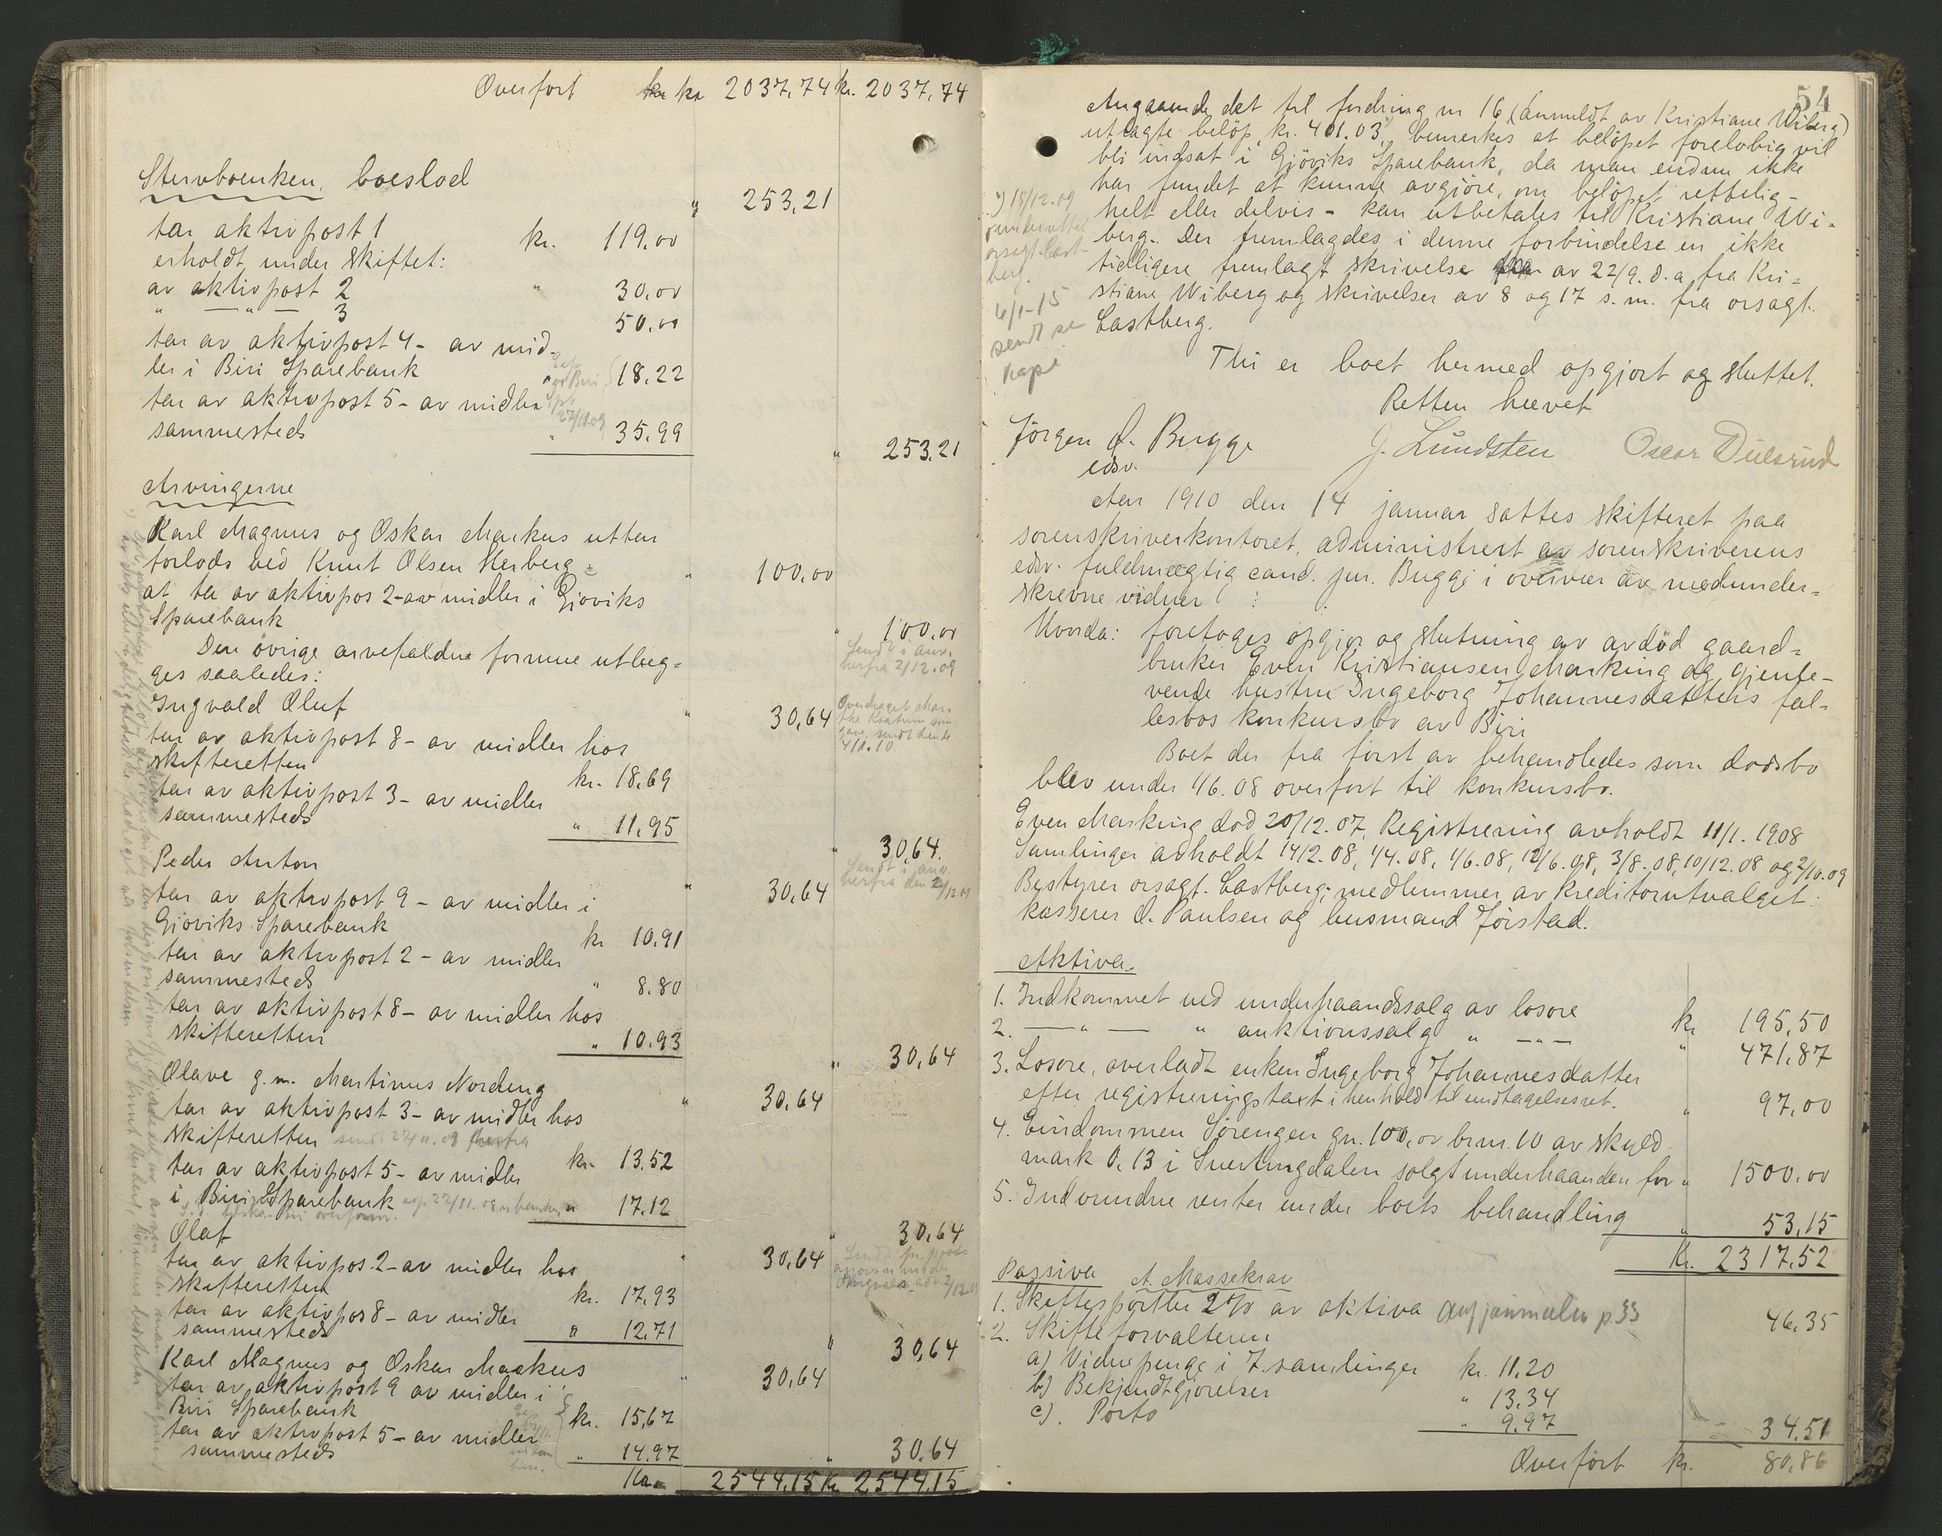 Overført kr 2037,74 kr. 2037,74
Stervboenken, boeslod " 253,21
tar aktivpost 1 kr. 119,00
erholdt under skiftet:
av aktivpost 2 " 30,00
" — " — 3 50,00
tar av aktivpost 4 - av mid-
ler i Biri Sparebank 18,22
tar av aktivpost 5 - av midler
sammesteds " 35,99
" 253,21
Arvingerne
Karl Magnus og Oskar Markus uttar
forlods ved Knut Olsen Herberg " 100,00
at ta av aktivpos 2 - av midler i Gjøviks
Sparebank " 100,00
Sendt i anv.
herfra 2/12.09
Den øvrige arvefaldne formue utlæg=
ges saaledes:
Ingvald Oluf " 30,64
tar av aktivpost 8 - av midler hos
skifteretten kr. 18,69
tar av aktivpost 3 - av midler
sammesteds " 11,95
" 30,64
Peder Anton " 30,64
tar av aktivpost 9 - av midler i
Gjøviks Sparebank kr 10,91
tar av aktivpost 2 - av midler
sammesteds " 8,80
tar av aktivpost 8 - av midler hos
skifteretten " 10,93
" 30,64
Olave g.m. Martinus Nordeng " 30,64
tar av aktivpost 3 - av midler hos
skifteretten sendt 27/11.09 herfra kr. 13,52
tar av aktivpost 5 - av midler
i Biri Sparebank " 17,12
" 30,64
Olaf " 30,64
tar av aktivpos. 2 - av midler hos
skifteretten kr. 17,93
tar av aktivpos 8 - av midler
sammesteds " 12,71
" 30,64
Karl Magnus og Oskar Markus " 30,64
tar av aktivpost 9 av midler i
Biri Sparebank kr. 15,67
tar av aktivpost 5 - av midler
sammesteds " 14,97
" 30,64
Kr. 2544,15 Kr. 2544,15
54
Angaaende det til fordring nr 16 (anmeldt av Kristiane Wiberg)
utlagte beløp, kr. 401.03, bemerkes at beløpet foreløbig vil
bli indsat i Gjøviks Sparebank, da man endnu ikke
har fundet at kunne avgjøre, om beløpet rettelig -
helt eller delvis - kan utbetales til Kristiane Wi=
berg. Der fremlagdes i denne forbindelse en ikke
tidligere fremlagt skrivelse av 22/9. d.a. fra Kri=
stiane Wiberg og skrivelser av 8 og 17 s.m. fra orsagf.
Castberg.
6/1-15
sendt
Thi er boet hermed opgjort og sluttet.
Retten hævet
Jörgen A. Bugge
edsv.
J. Lundsten Oscar Dulsrud
Aar 1910 den 14 januar sattes skifteret paa
sorenskriverkontoret, administrert av sorenskriverens
edsv. fuldmægtig cand. jur. Bugge i overvær av medunder=
skrevne vidner
Hvorda: foretoges opgjør og slutning av avdød gaard=
bruker Even Kristiansen Marking og gjenle=
vende hustru Ingeborg Johannesdatters fæl=
lesbos konkursbo av Biri
Boet der fra først av behandledes som dødsbo
blev under 1/6.08 overført til konkursbo.
Even Marking død 20/12.07. Registrering avholdt 11/1. 1908
Samlinger avholdt 14/2.08, 1/4.08, 1/6.08, 12/6.08, 3/8.08, 10/12.08 og 2/10.09
Bestyrer orsagf. Castberg; medlemmer av kreditorutvalget:
kasserer O. Paulsen og husmand Jørstad.
Aktiva.
1. Indkommet ved underhaandssalg av løsøre kr 195,50
2. — " — " auktionssalg " — " — " 471,87
3. Løsøre, overladt enken Ingeborg Johannesdatter
efter registreringstakst i henhold til undtagelsesret. " 97,00
4. Eiendommen Sørengen gn. 100, br.nr. 10 av skyld
mark 0,13 i Snertingdalen solgt underhaanden for " 1500,00
5. Indvundne renter under boets behandling " 53,15
Kr. 2317,52
Passiva A. Massekrav
1. Skiftesportler 2% av aktiva 46,35
2. Skifteforvalteren
a) Vidnepenge i 7 samlinger kr. 11,20
b) Bekjendtgjørelser " 13,34
c). Porto " 9,97
34,51
Overført kr. 80,86